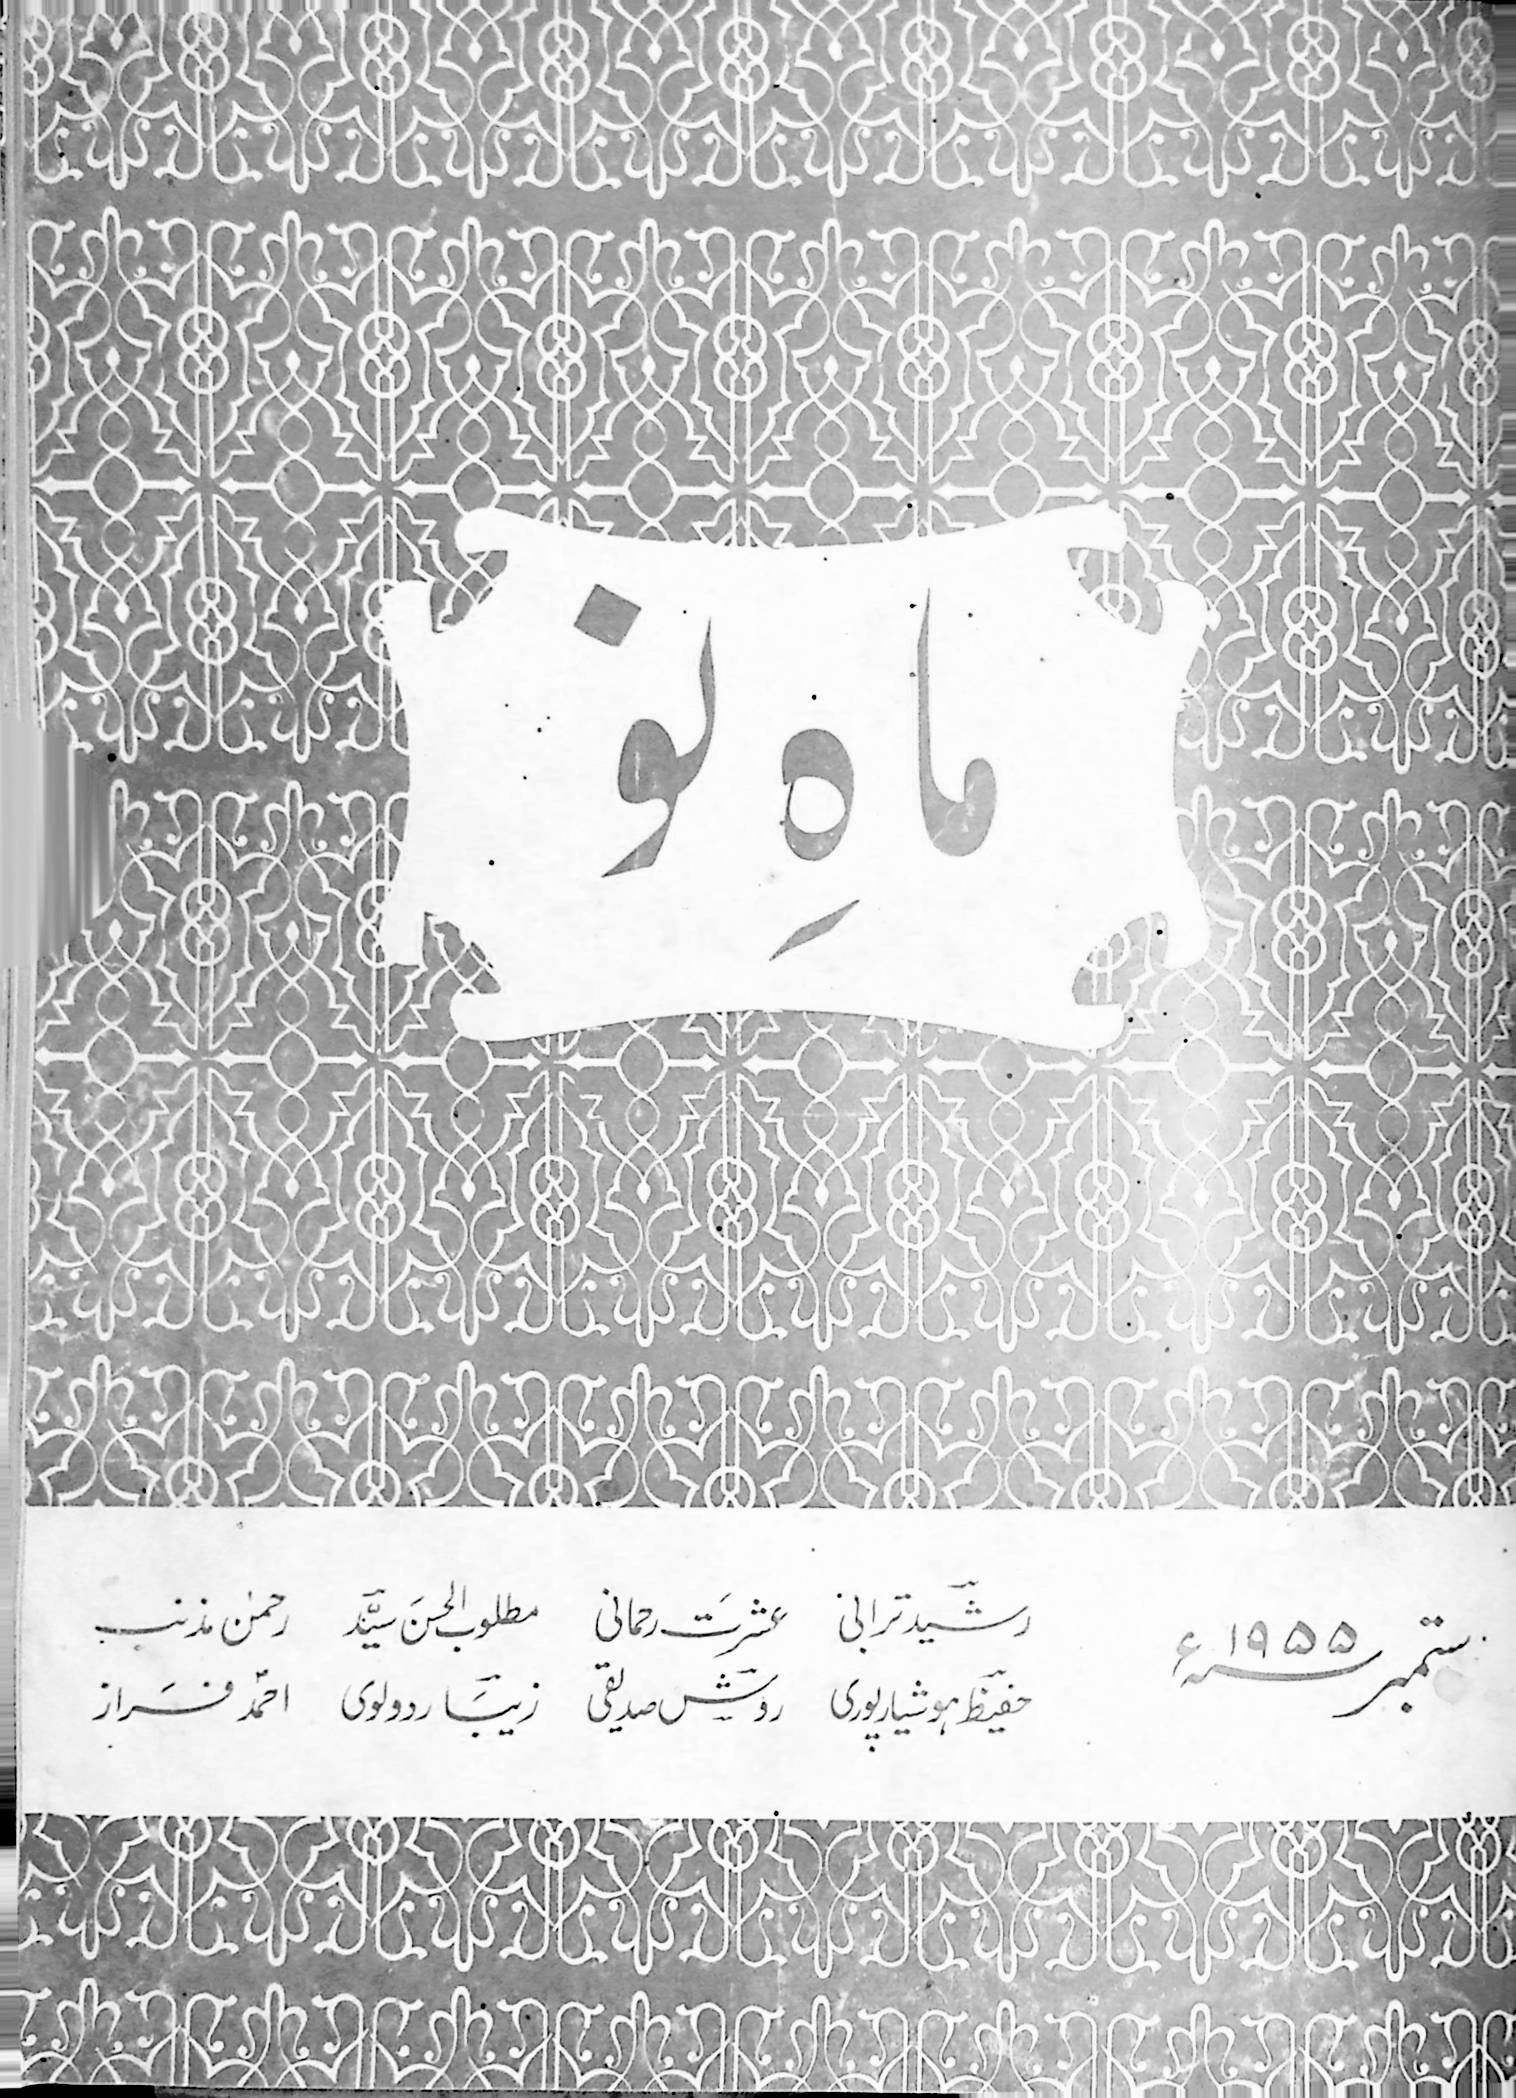 ماہِ نو
ستمبر ۱۹۵۵ء
رشید ترابی عشرت رحمانی مطلوب الحسن سیّد رحمٰن مذنب
حفیظ ہوشیارپوری روش صدیقی زیبا ردولوی احمد فراز